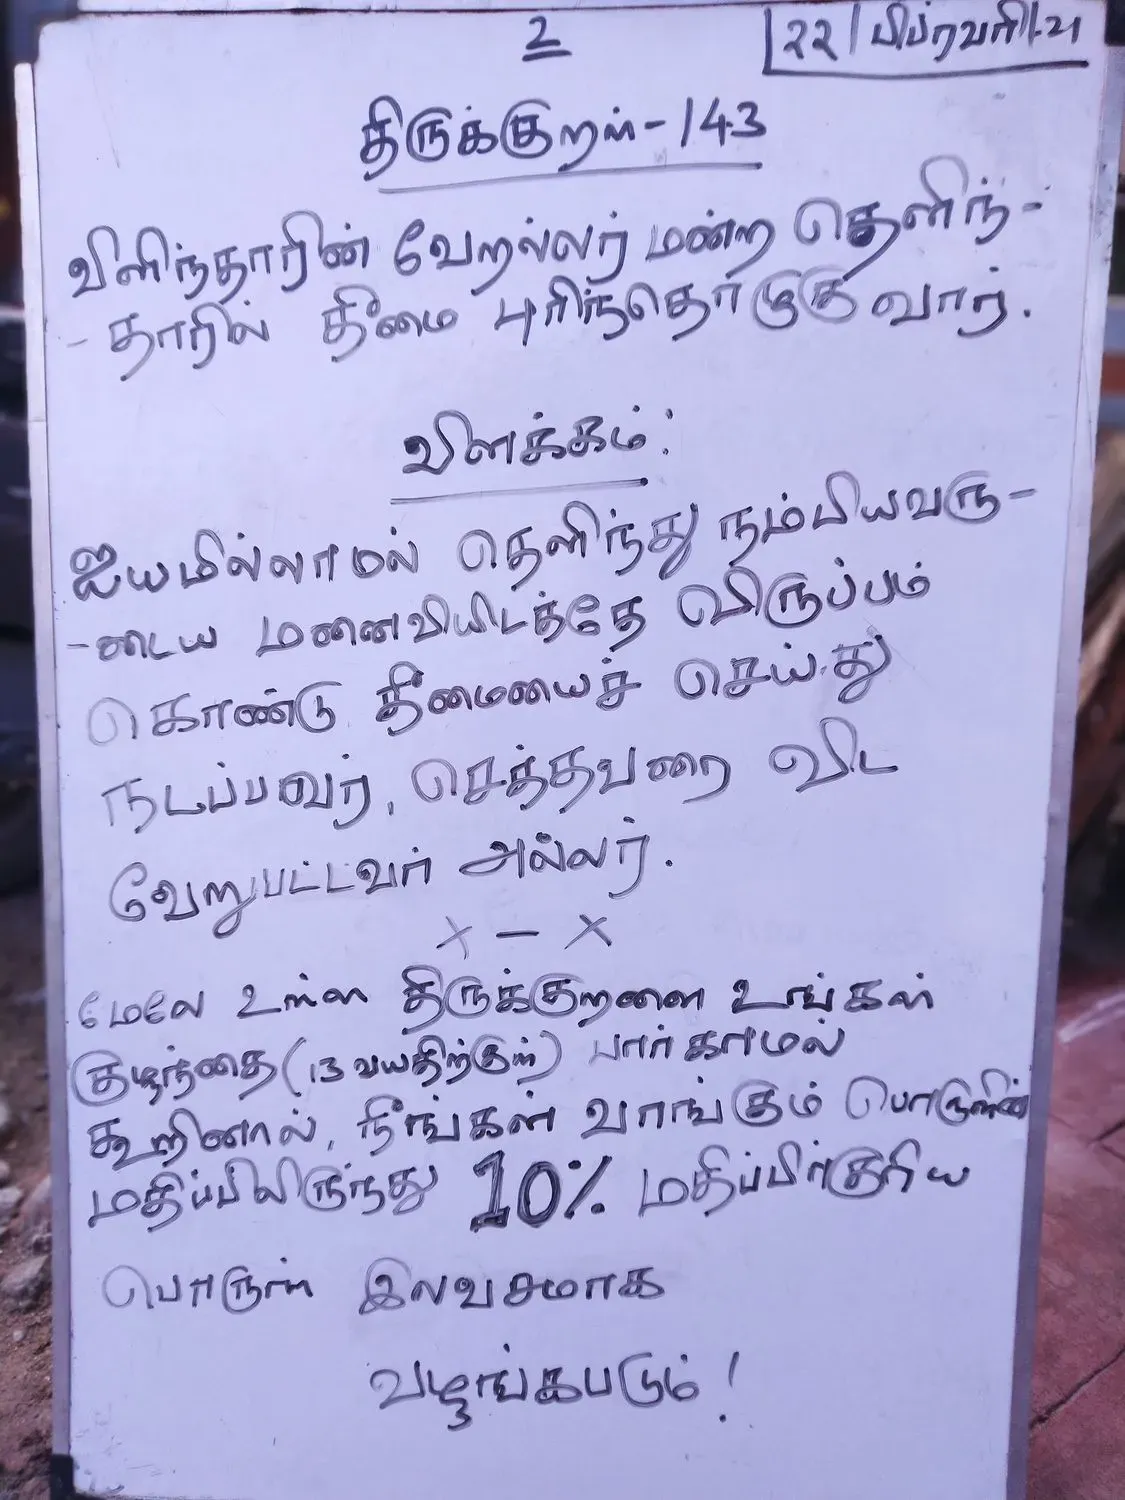 உ
22/பிப்ரவரி/-21
திருக்குறள் - 143
விளிந்தாரின் வேறல்லர் மன்ற தெளிந்-
- தாரில் தீமை புரிந்தொழுகு வார்.
விளக்கம்:
ஐயமில்லாமல் தெளிந்து நம்பியவரு-
- டைய மனைவியிடத்தே விருப்பம்
கொண்டு தீமையைச் செய்து
நடப்பவர், செத்தவரை விட
வேறுபட்டவர் அல்லர்.
x - x
மேலே உள்ள திருக்குறளை உங்கள்
குழந்தை (13 வயதிற்குள்) பார்காமல்
கூறினால், நீங்கள் வாங்கும் பொருளின்
மதிப்பிலிருந்து 10% மதிப்பிற்குரிய
பொருள் இலவசமாக
வழங்கபடும்!